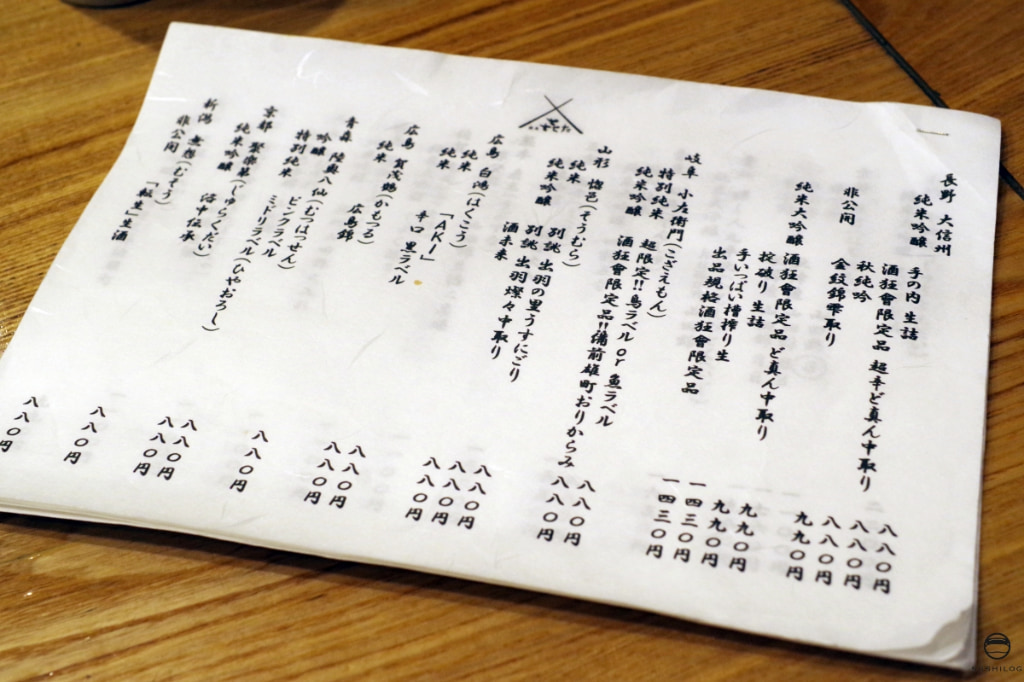 長野 大信州
純米吟醸 手の内 生詰
酒狂會限定品 超辛ど真ん中取り
秋純吟
非公開 金紋錦雫取り
純米大吟醸 酒狂會限定品 ど真ん中取り
掟破り 生詰
手いっぱい槽搾り生
出品規格酒狂會限定品
八八〇円
八八〇円
八八〇円
九九〇円
九九〇円
九九〇円
一四三〇円
一四三〇円
岐阜 小左衛門(こざえもん)
特別純米 超限定!!鳥ラベル or 魚ラベル
純米吟醸 酒狂會限定品!!備前雄町おりからみ
八八〇円
八八〇円
山形 惣邑(そうむら)
純米 別誂 出羽の里うすにごり
純米吟醸 別誂 出羽燦々中取り
酒未来
八八〇円
八八〇円
八八〇円
広島 白鴻(はくこう)
純米 「AKI」
純米 辛口 黒ラベル
八八〇円
八八〇円
広島 賀茂鶴(かもつる)
純米 広島錦
八八〇円
青森 陸奥八仙(むつはっせん)
吟醸 ピンクラベル
特別純米 ミドリラベル(ひやおろし)
八八〇円
八八〇円
京都 聚楽第(じゅらくだい)
純米吟醸 洛中伝承
八八〇円
新潟 無想(むそう)
非公開 「転生」生酒
八八〇円